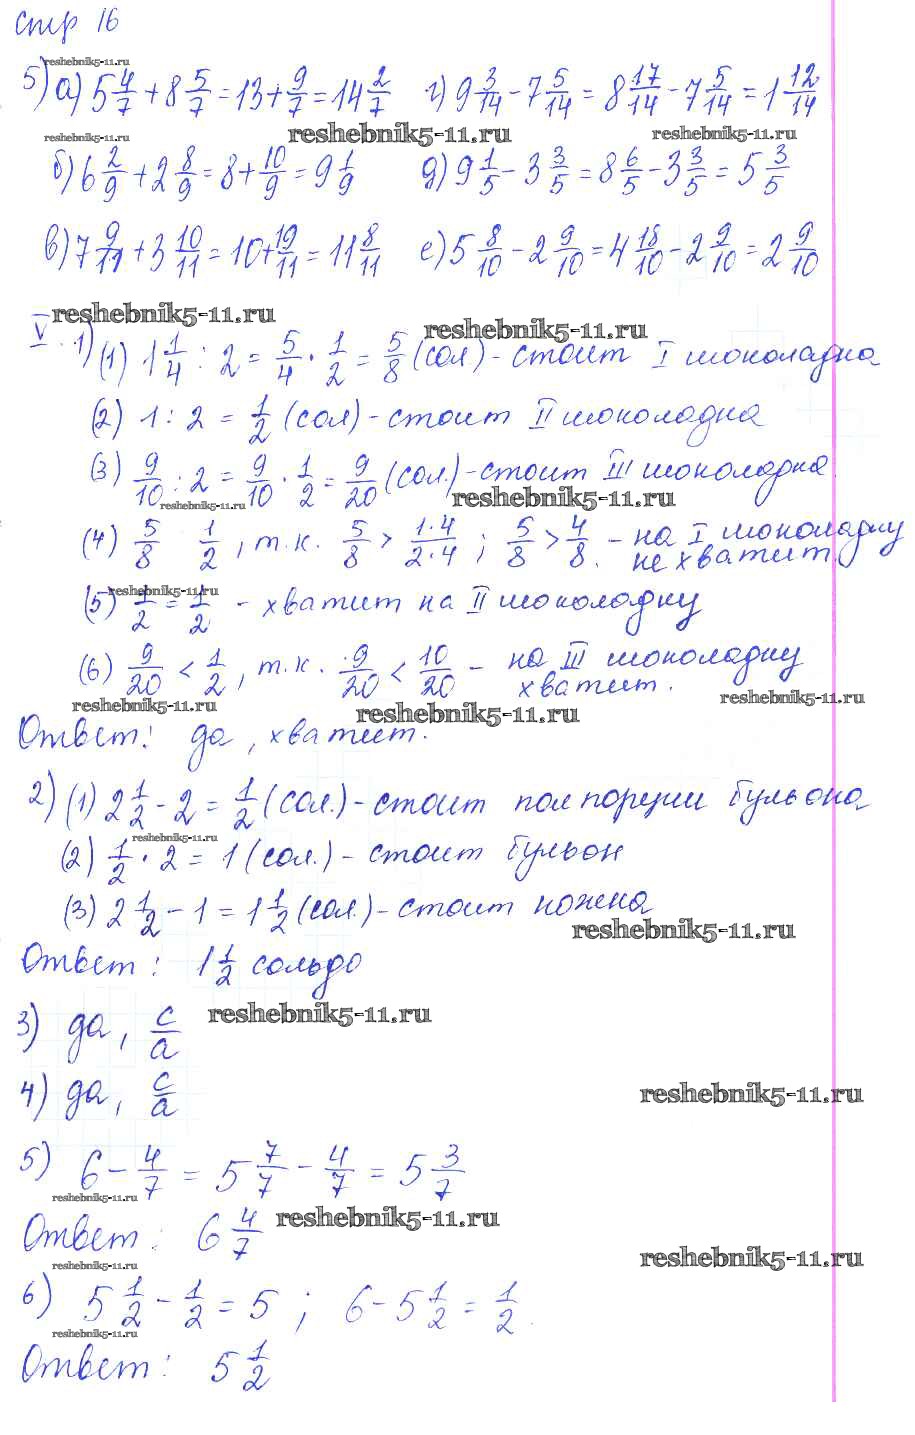 стр 16
reshebnik5-11.ru
5) а) 5 4/7 + 8 5/7 = 13 + 9/7 = 14 2/7   г) 9 3/14 - 7 5/14 = 8 17/14 - 7 5/14 = 1 12/14
reshebnik5-11.ru reshebnik5-11.ru reshebnik5-11.ru
б) 6 2/9 + 2 8/9 = 8 + 10/9 = 9 1/9   д) 9 1/5 - 3 3/5 = 8 6/5 - 3 3/5 = 5 3/5
в) 7 9/11 + 3 10/11 = 10 + 19/11 = 11 8/11   е) 5 8/10 - 2 9/10 = 4 18/10 - 2 9/10 = 2 9/10
reshebnik5-11.ru reshebnik5-11.ru
V. 1) (1) 1 1/4 : 2 = 5/4 · 1/2 = 5/8 (сол) - стоит I шоколадка
(2) 1 : 2 = 1/2 (сол) - стоит II шоколадка
(3) 9/10 : 2 = 9/10 · 1/2 = 9/20 (сол.) - стоит III шоколадка
reshebnik5-11.ru reshebnik5-11.ru
(4) 5/8 1/2, т.к. 5/8 > 1·4/2·4 ; 5/8 > 4/8. - на I шоколадку
не хватит.
reshebnik5-11.ru
(5) 1/2 = 1/2 - хватит на II шоколадку
(6) 9/20 < 1/2, т.к. 9/20 < 10/20 - на III шоколадку
хватит.
reshebnik5-11.ru reshebnik5-11.ru reshebnik5-11.ru
Ответ: да, хватит.
2) (1) 2 1/2 - 2 = 1/2 (сол.) - стоит пол порции бульона
reshebnik5-11.ru
(2) 1/2 · 2 = 1 (сол.) - стоит бульон
(3) 2 1/2 - 1 = 1 1/2 (сол.) - стоит ножека
reshebnik5-11.ru
Ответ: 1 1/2 сольдо
3) да, c/a
reshebnik5-11.ru
4) да, c/a
reshebnik5-11.ru
5) 6 - 4/7 = 5 7/7 - 4/7 = 5 3/7
reshebnik5-11.ru reshebnik5-11.ru
Ответ: 6 4/7
reshebnik5-11.ru reshebnik5-11.ru
6) 5 1/2 - 1/2 = 5 ; 6 - 5 1/2 = 1/2.
reshebnik5-11.ru
Ответ: 5 1/2